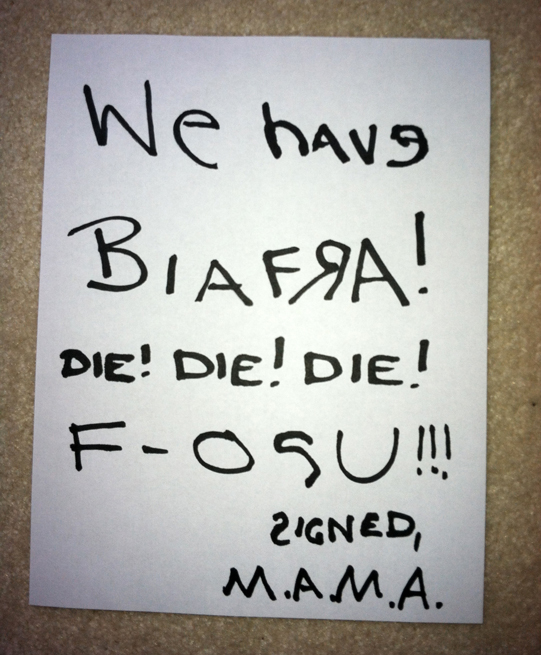 We have
BIAFRA!
DIE! DIE! DIE!
F-OSU!!!
SIGNED,
M.A.M.A.